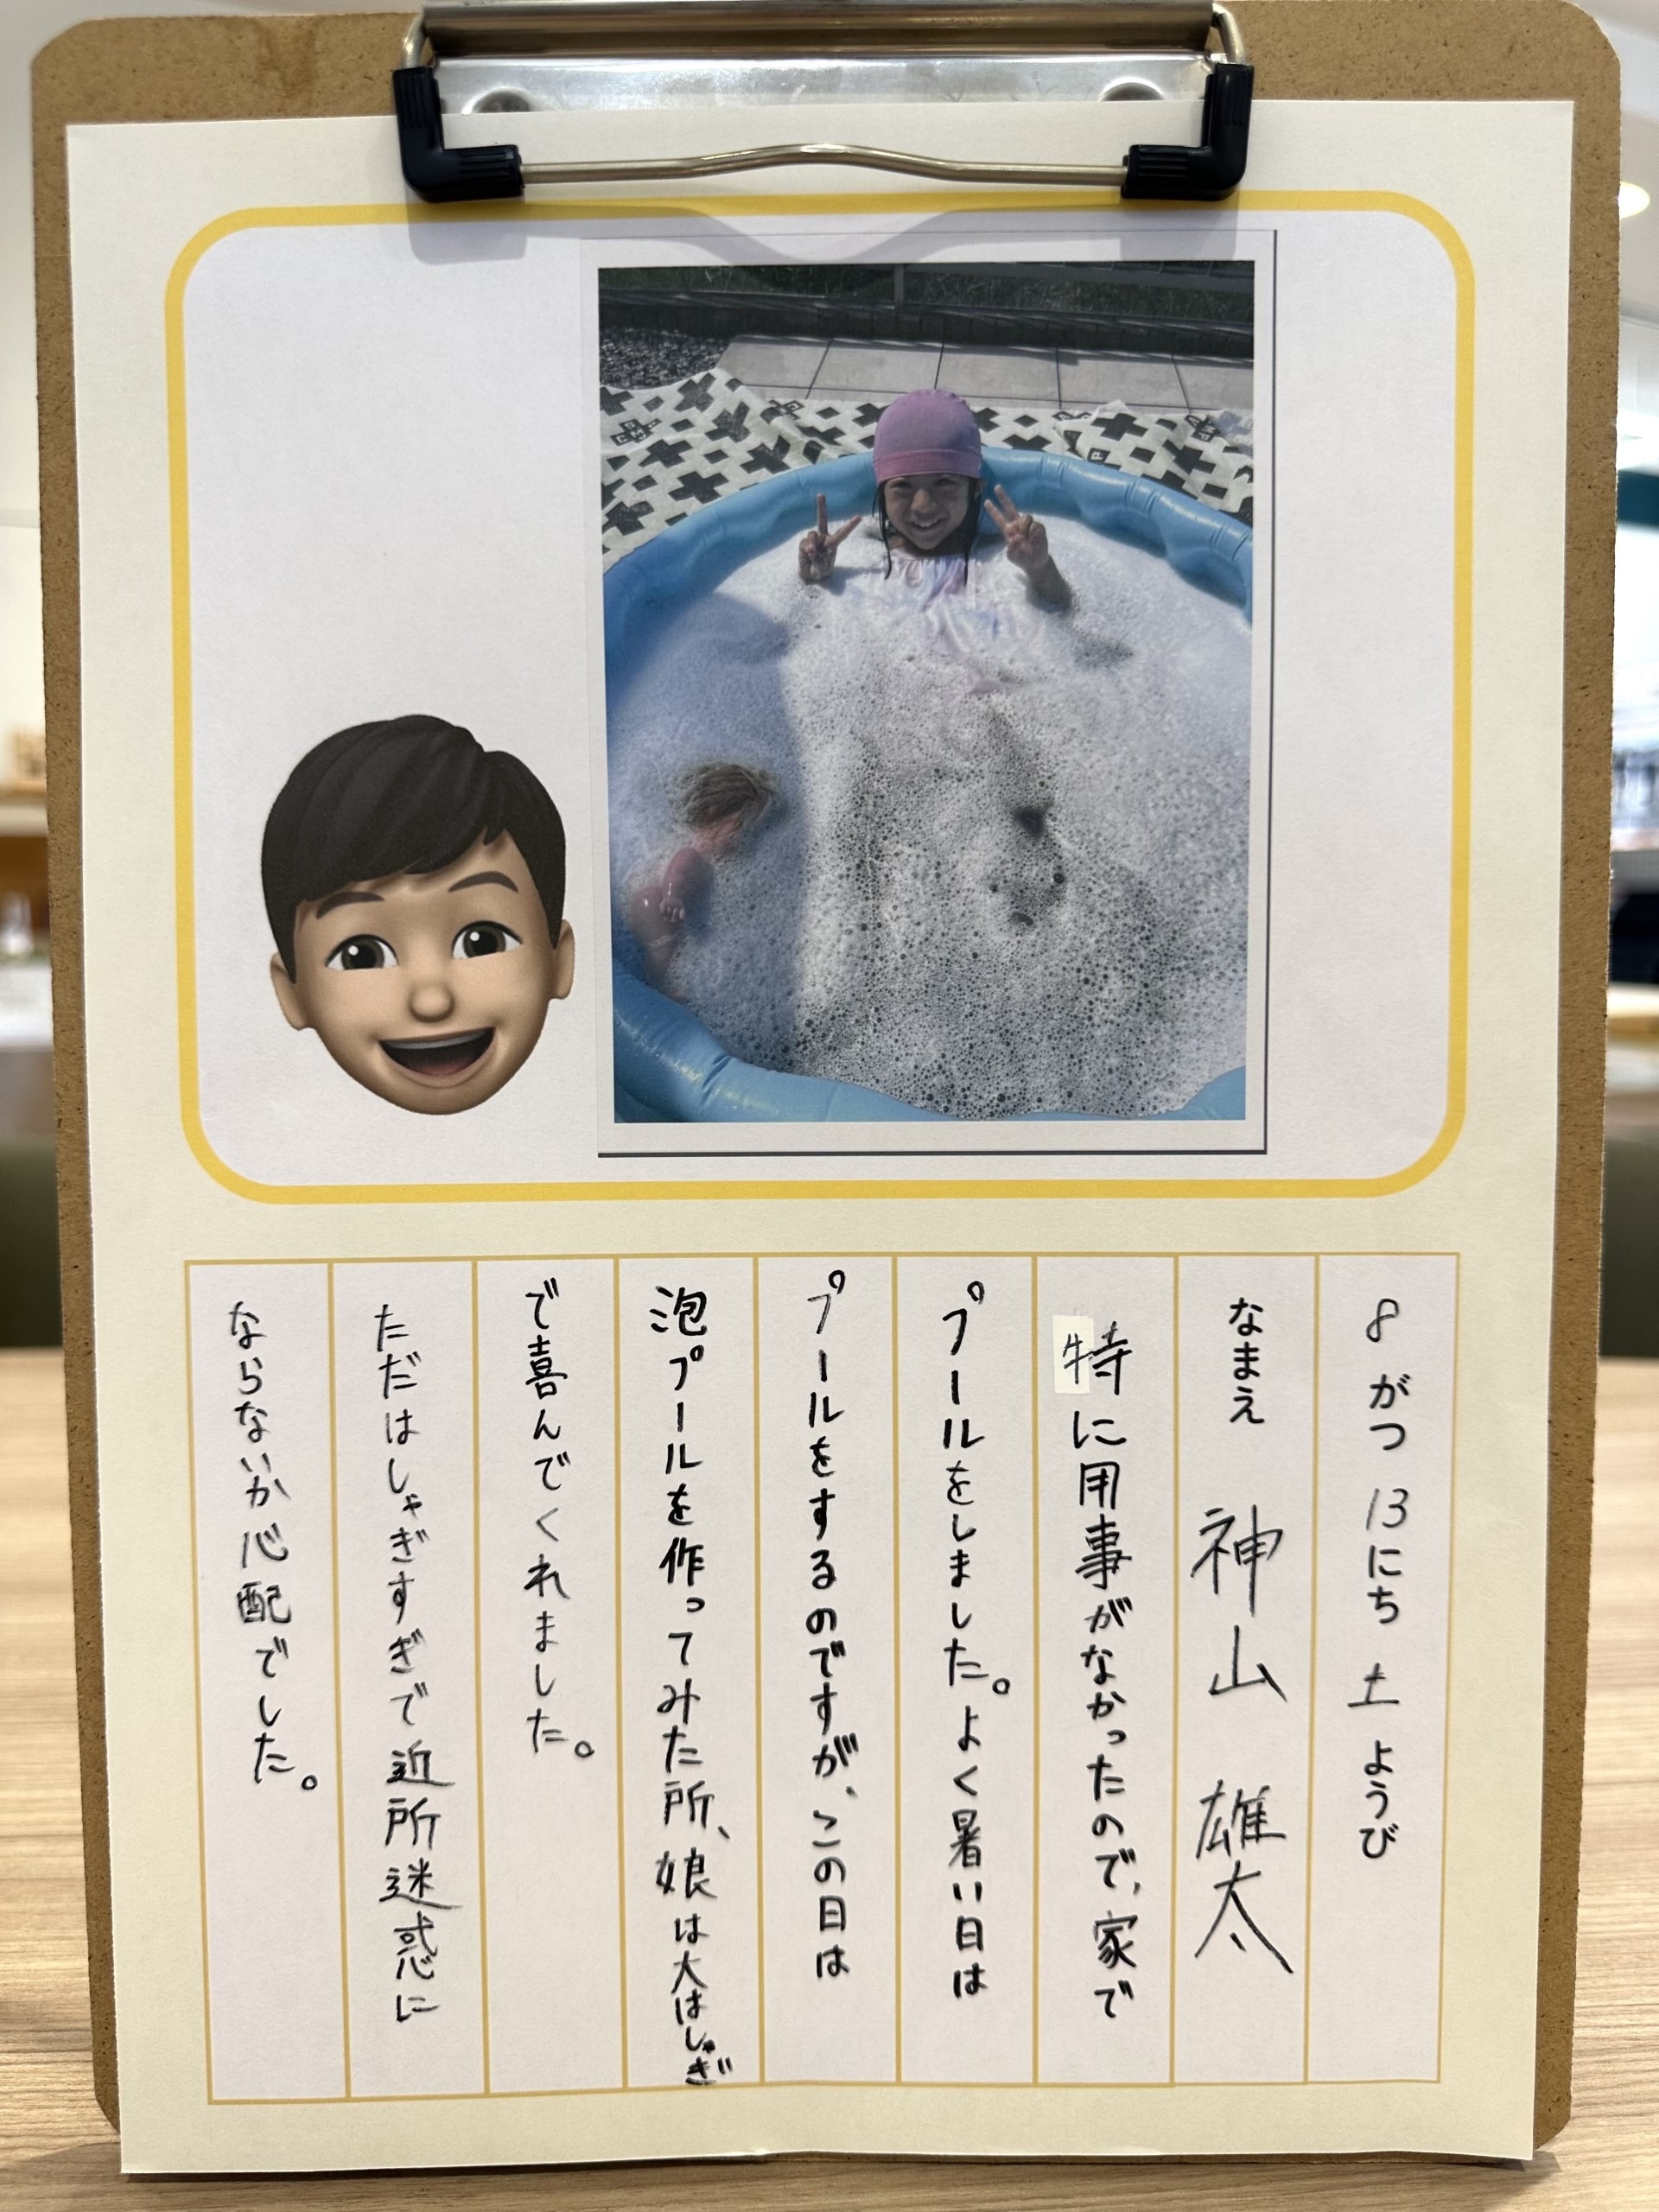 8がつ13にち土ようび
なまえ 神山 雄太
特に用事がなかったので、家で
プールをしました。よく暑い日は
プールをするのですが、この日は
泡プールを作ってみた所、娘は大はしゃぎ
で喜んでくれました。
ただはしゃぎすぎで近所迷惑に
ならないか心配でした。